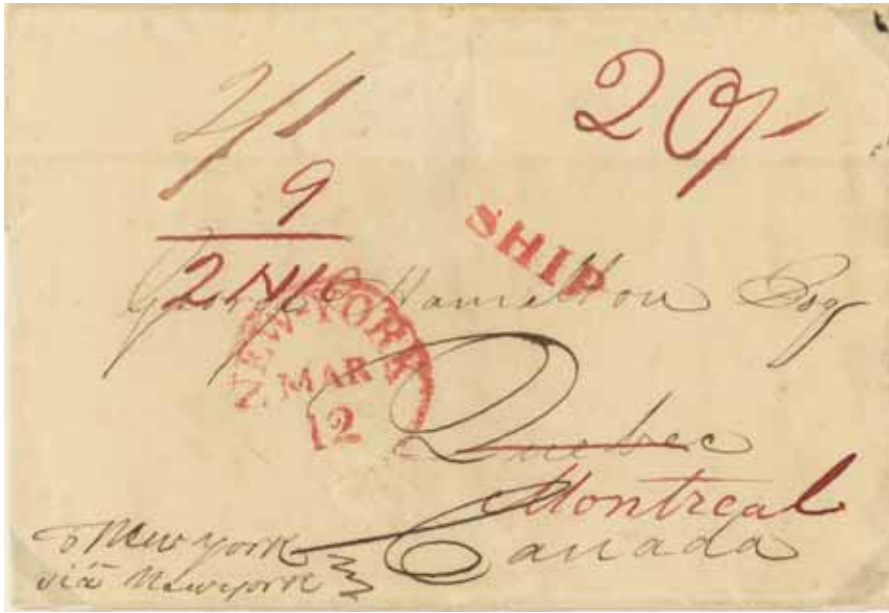 2/1
20/-
9
SHIP
2N10
George Hamelton Esq
NEW-YORK
MAR
12
Quebec
Montreal
Canada
New york
viä Newyork